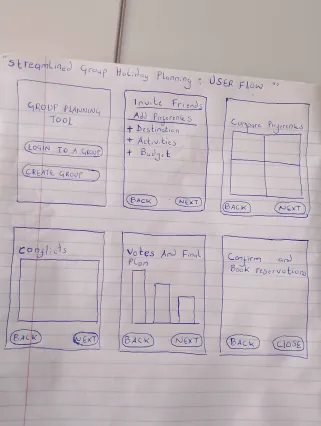 "Streamlined Group Holiday Planning : USER FLOW "
GROUP PLANNING
TOOL
LOGIN TO A GROUP
CREATE GROUP
Invite Friends
Add Preferences
+ Destination
+ Activities
+ Budget
BACK
NEXT
Compare Preferences
BACK
NEXT
Conflicts
BACK
NEXT
Votes And Final
Plan
BACK
NEXT
Confirm and
Book reservations
BACK
CLOSE